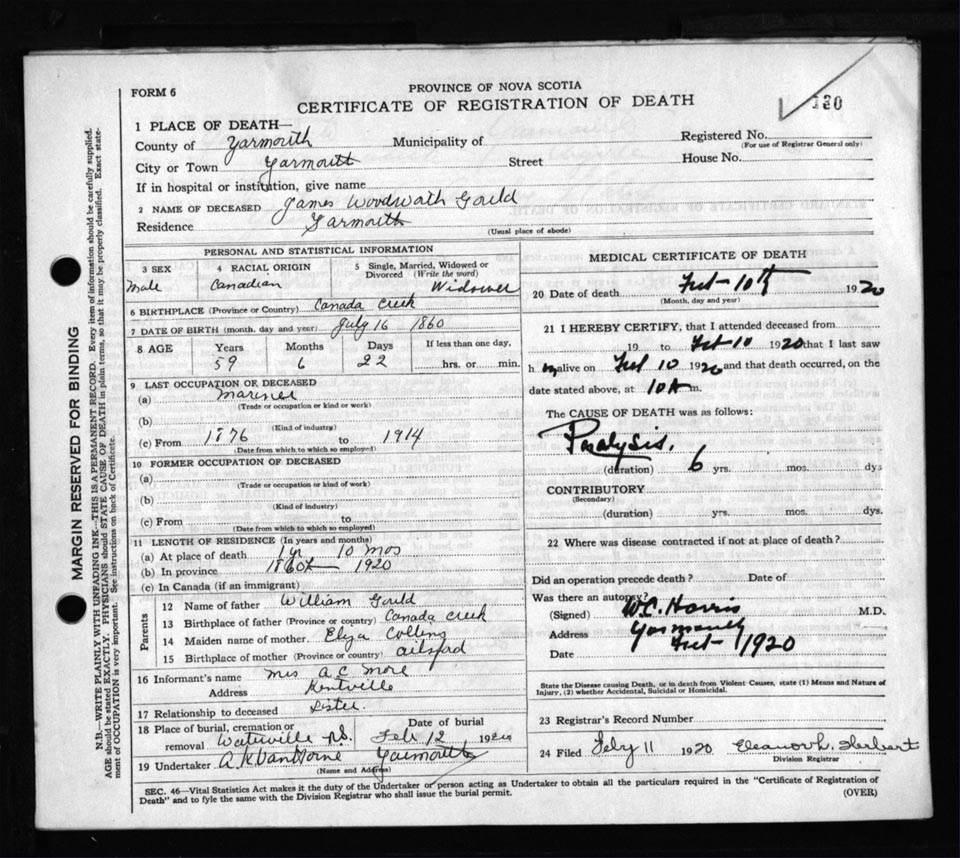 FORM 6
PROVINCE OF NOVA SCOTIA
CERTIFICATE OF REGISTRATION OF DEATH
130
1 PLACE OF DEATH—
County of Yarmouth Municipality of Registered No.
(For use of Registrar General only)
City or Town Yarmouth Street House No.
If in hospital or institution, give name
2 NAME OF DECEASED James Woodwath Gould
Residence Yarmouth
(Usual place of abode)
PERSONAL AND STATISTICAL INFORMATION
3 SEX 4 RACIAL ORIGIN 5 Single, Married, Widowed or Divorced (Write the word)
Male Canadian Widower
6 BIRTHPLACE (Province or Country) Canada Creek
7 DATE OF BIRTH (month, day and year) July 16 1860
8 AGE Years Months Days If less than one day,
59 6 22 hrs. or min.
9 LAST OCCUPATION OF DECEASED
(a) Mariner
(Trade or occupation or kind or work)
(b)
(Kind of industry)
(c) From 1876 to 1914
(Date from which to which so employed)
10 FORMER OCCUPATION OF DECEASED
(a)
(Trade or occupation or kind of work)
(b)
(Kind of industry)
(c) From to
(Date from which to which so employed)
11 LENGTH OF RESIDENCE (In years and months)
(a) At place of death 1 yr 10 mos
(b) In province 1860 to 1920
(c) In Canada (if an immigrant)
Parents
12 Name of father William Gould
13 Birthplace of father (Province or country) Canada Creek
14 Maiden name of mother. Eliza Collins
15 Birthplace of mother (Province or country)
16 Informant's name Mrs A C More
Address Kentville
17 Relationship to deceased Sister.
18 Place of burial, cremation or removal Waterville N.S. Date of burial Feb 12 1920
19 Undertaker A K VanHorne Yarmouth
(Name and Address)
MEDICAL CERTIFICATE OF DEATH
20 Date of death Feb 10th 1920
(Month, day and year)
21 I HEREBY CERTIFY, that I attended deceased from
19 to Feb 10 1920 that I last saw
h im alive on Feb 10 1920 and that death occurred, on the
date stated above, at 10 A m.
The CAUSE OF DEATH was as follows:
Paralysis.
(duration) 6 yrs. mos. dys
CONTRIBUTORY
(Secondary)
(duration) yrs. mos. dys.
22 Where was disease contracted if not at place of death?
Did an operation precede death? Date of
Was there an autopsy?
(Signed) W.C. Harris M.D.
Address Yarmouth
Date Feb 1 1920
State the Disease causing Death, or in death from Violent Causes, state (1) Means and Nature of
Injury, (2) whether Accidental, Suicidal or Homicidal.
23 Registrar's Record Number
24 Filed Feby 11 1920 Eleanor L. Herbert
Division Registrar
SEC. 46—Vital Statistics Act makes it the duty of the Undertaker or person acting as Undertaker to obtain all the particulars required in the "Certificate of Registration of
Death" and to fyle the same with the Division Registrar who shall issue the burial permit. (OVER)
MARGIN RESERVED FOR BINDING
N.B.—WRITE PLAINLY WITH UNFADING INK—THIS IS A PERMANENT RECORD. Every item of information should be carefully supplied.
AGE should be stated EXACTLY. PHYSICIANS should STATE CAUSE OF DEATH in plain terms, so that it may be properly classified. Exact state-
ment of OCCUPATION is very important. See instructions on back of Certificate.